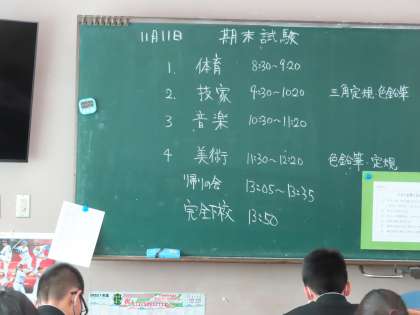 11月11日 期末試験
1. 体育 8:30~9:20
2. 技家 9:30~10:20 三角定規・色鉛筆
3 音楽 10:30~11:20
4 美術 11:30~12:20 色鉛筆・定規
帰りの会 13:05~13:35
完全下校 13:50